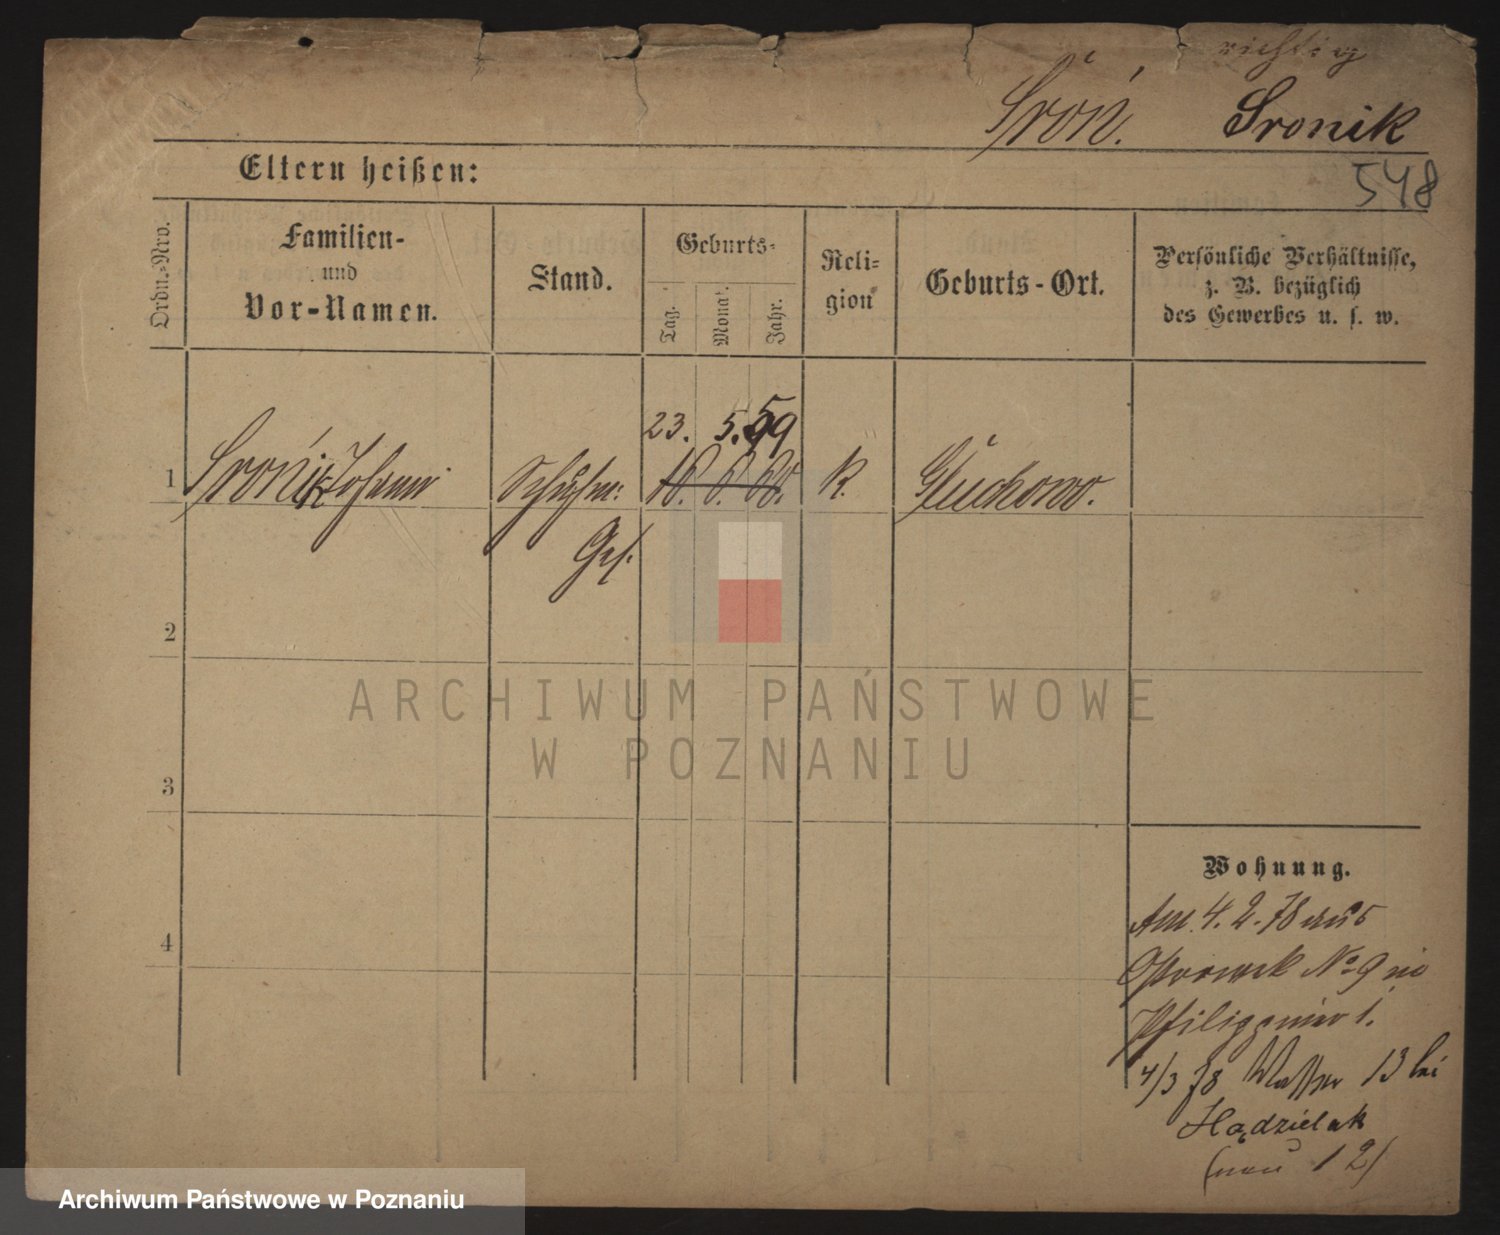 richtig
Sroń. Sronik
548
Eltern heißen:
Ordn.-Nro.
Familien-
und
Vor-Namen.
Stand.
Geburts-
Tag.
Monat.
Jahr.
Reli-
gion
Geburts-Ort.
Persönliche Verhältnisse,
z. B. bezüglich
des Gewerbes u. s. w.
23. 5. 59
1 Sronik Johann Schuhm: 18. 8. 60. K. Głuchowo.
Ges.
2
3
4
ARCHIWUM PAŃSTWOWE
W POZNANIU
Wohnung.
Am 4. 2. 78 aus
Ostrowek No 9 in
1.
4/3 78 Wasser 13 bei
Hądzielak
(neu 12)
Archiwum Państwowe w Poznaniu